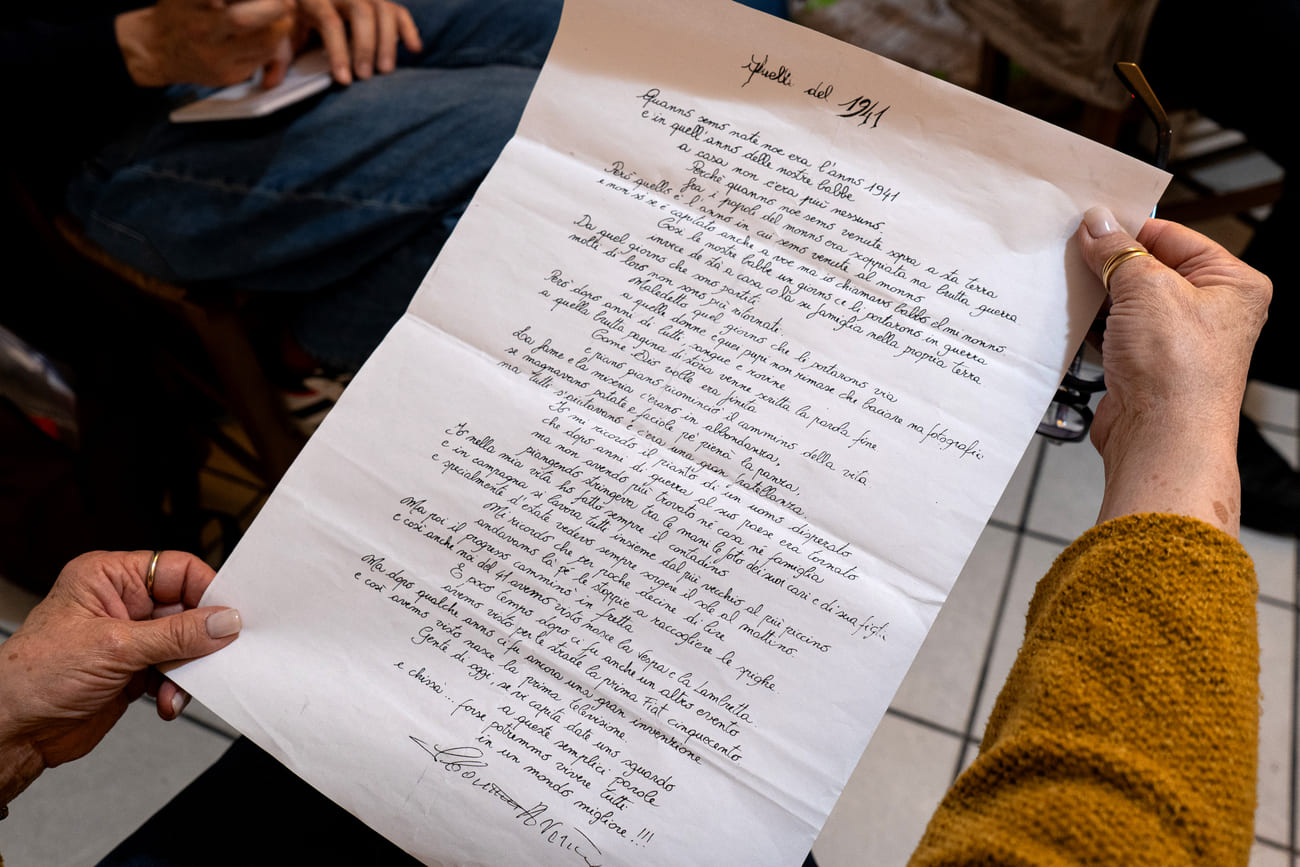 Quelli del 1941
Quanno semo nate noe era l'anno 1941
e in quell'anno delle nostre babbe
a casa non c'era più nessuno
Perché quanno noe semo venute sopra a sta terra
fra i popoli del monno era scoppiata na brutta guerra
Però quello è l'anno in cui semo venute al monno
e non so se è capitato anche a voe ma io chiamavo babbo el mi nonno.
Così le nostre babbe un giorno ce li portarono in guerra
invece de stà a casa colà su famiglia nella propria terra
Da quel giorno che sono partiti
molte di loro non sono più ritornati.
Maledetto quel giorno che li portarono via
a quelle donne e quei pupi non rimase che baciare na fotografia
Però dopo anni di lutti, sangue e rovine
a quella brutta pagina di storia venne scritta la parola fine
Come Dio volle era finita
e piano piano ricominciò il cammino della vita
La fame e la miseria c'erano in abbondanza,
se magnaveno patate e faciole pe' pienà la panza,
ma tutti s'aiutavano c'era una gran fratellanza.
Io mi ricordo il pianto di un uomo disperato
che dopo anni di guerra al suo paese era tornato
ma non avendo più trovato né casa né famiglia
piangendo stringeva tra le mani le foto dei suoi cari e di sua figlia
Io nella mia vita ho fatto sempre il contadino
e in campagna si lavora tutti insieme dal più vecchio al più piccino
e specialmente d'estate vedevo sempre sorgere il sole al mattino.
Mi ricordo che per poche decine di lire
andavamo là pe' le stoppie a raccogliere le spighe
Ma poi il progresso camminò in fretta
e così anche noi del 41 avemo visto nasce la Vespa e la Lambretta.
E poco tempo dopo ci fu anche un altro evento
avemo visto per le strade la prima Fiat cinquecento
Ma dopo qualche anno ci fu ancora una gran invenzione
e così avemo visto nasce la prima televisione.
Gente di oggi, se vi capita date uno sguardo
a queste semplici parole
e chissà... forse potremmo vivere tutti
in un mondo migliore!!!